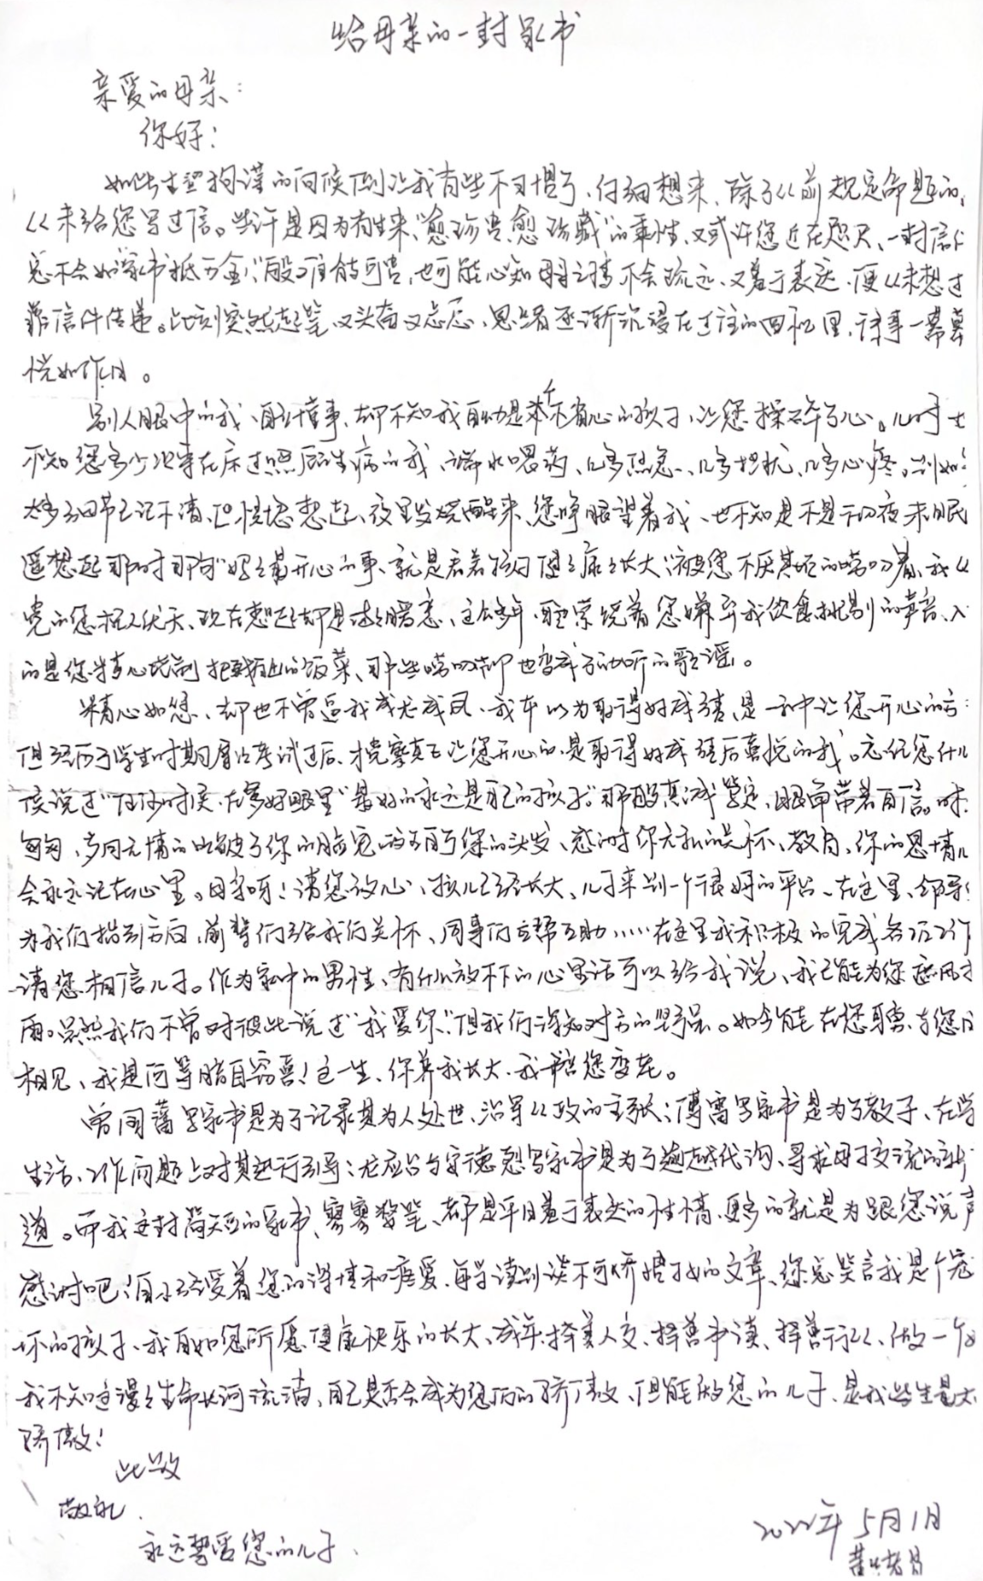 给母亲的一封家书
亲爱的母亲:
你好!
如此生硬拘谨的问候倒让我有些不习惯了,仔细想来,除了从前规定命题的,
从未给您写过信。些许是因为有生来“愈珍贵,愈珍藏”的秉性,又或许您近在咫尺,一封信
总不会如“家书抵万金”般难能可贵,也可能心知母子之情不会疏远,又羞于表达,便从未想过
靠信件传递。此刻突然起笔,又兴奋又忐忑,思绪逐渐沉浸在过往的回忆里,诸事一幕幕
恍如昨日。
别人眼中的我,自幼懂事,却不知我自幼是个不省心的孩子,让您操碎了心。儿时
不知您多少次守在床边照顾生病的我,端水喂药,几多焦急、几多担忧、几多心疼。
太多细节已记不清,但恍惚想起,夜里发烧醒来,您睁眼望着我,也不知是不是一夜未眠
遥想起那时那句“妈妈最开心的事,就是看着孩子健健康康长大”被您不厌其烦的唠叨着,我
觉的您杞人忧天,现在想起却是暖意,这么多年,耳边萦绕着您嫌弃我饮食挑剔的声音,入
的是您精心烧制 的饭菜,那些唠叨却也变成了动听的歌谣。
精心如您,却也不曾逼我成龙成凤,我本以为取得好成绩,是一种让您开心的方
但经历了学生时期屡次考试过后,才觉察真正让您开心的,是取得好成绩后喜悦的我。忘记您什么
候说过“任何时候,在爹妈眼里,最好的永远是自己的孩子”那般真诚坚定,眼角带着自信。时
匆匆,岁月无情的 了你的脸 了你的头发,感谢你无私的关怀、教育,你的恩情儿
会永远记在心里。母亲呀!请您放心,孩儿已经长大,儿子来到一个很好的平台,在这里,领导
为我们指引方向,前辈们给我们关怀,同事们互帮互助……在这里我积极的完成各项工作
请您相信儿子。作为家中的男性,有什么放不下的心里话可以给我说,我已能为您遮风
雨。虽然我们不曾对彼此说过“我爱你”,但我们深知对方的 。如今能在您身旁,与您
相见,我是何等 !这一生,你养我长大,我陪您变老。
曾国藩写家书是为了记录其为人处世、治军从政的主张;傅雷写家书是为了教子,在学
生活、工作问题上对其进行引导;龙应台与安德烈写家书是为了逾越代沟、寻求母子交流的
道。而我这封简短的家书,寥寥数笔,却是平日羞于表达的性情,更多的就是为跟您说声
感谢吧!自小享受着您的深情和疼爱,每每读到谈不可娇惯孩子的文章,您总笑言我是个宠
坏的孩子,我自如您所愿健康快乐的长大、成年,择善人交、择善书读、择善行从,做一个
我不知这漫漫生命长河流淌,自己是否会成为您的骄傲,但能做您的儿子,是我此生最大
骄傲!
此致
敬礼
永远挚爱您的儿子
2022年5月1日